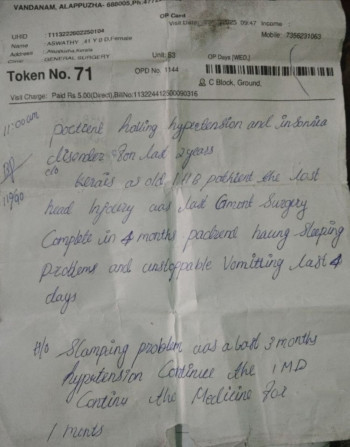 VANDANAM, ALAPPUZHA- 688005,Ph.477
OP Card
UHID : T1132302250104
Name : ASWATHY ,41 Y 0 D,Female
Address : Alappuzha,Kerala
GENERAL SURGERY
Visit Date: 2025 09:47 Income :
Mobile: 7266231063
Unit: S3 OP Days [WED,]
Token No. 71 OPD No. 1144
C Block, Ground,
Visit Charge: Paid Rs.5.00(Direct),BillNo:113224412500090316
11:00am
patient having hypertension and insomnia
disorder for last 2 years
c/o
BP
119/90
as old patient the last
head Injury was last 6mont Surgery
Complete in 4 months patient having Sleeping
Problems and unstoppable Vomitting last 4
days
H/o Slamping problem was a last 3 months
hypertension Continue the IMD
Continu the Medicine for
1 month